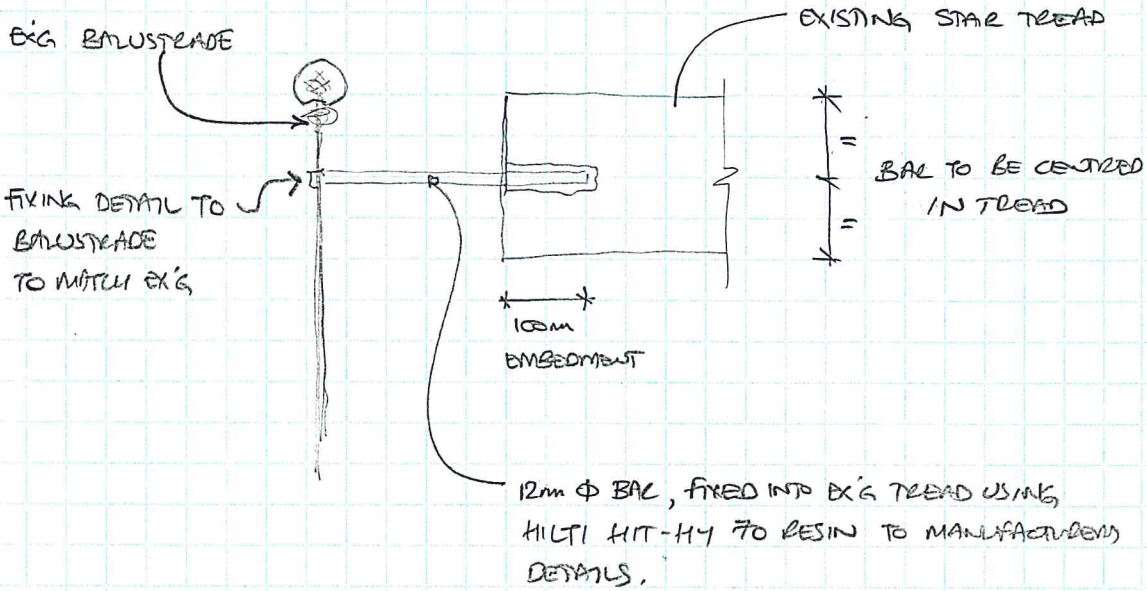 EX'G BALUSTRADE
EXISTING STAR TREAD
=
BAR TO BE CENTRED
IN TREAD
=
FIXING DETAIL TO
BALUSTRADE
TO MATCH EX'G
100mm
EMBEDMENT
12mm Φ BAR, FIXED INTO EX'G TREAD USING
HILTI HIT-HY 70 RESIN TO MANUFACTURERS
DETAILS.